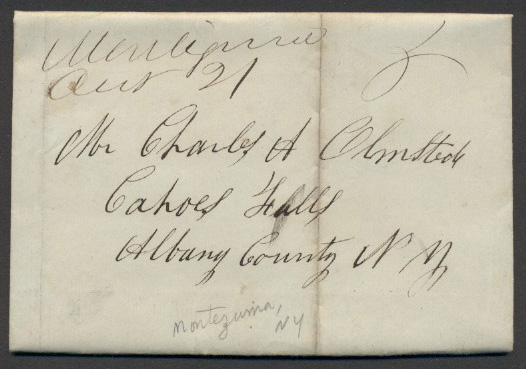 Montezuma
Oct 21 5
Mr Charles A Olmsted
Cahoes Falls
Albany County N Y
Montezuma,
NY